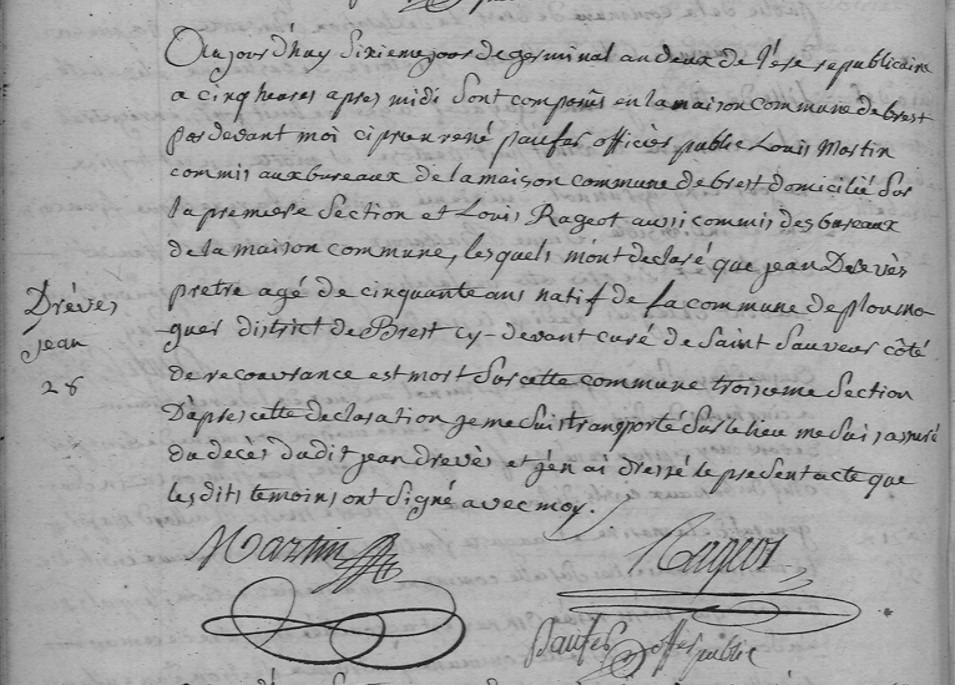 Aujourd'huy sixieme jour de germinal an deux de l'ere republicaine
a cinq heures apres midi sont comparûs en la maison commune de brest
par devant moi ciprien rené paufer officièr public Louis Martin
commis aux bureaux de la maison commune de brest domicilié sur
la premiere Section et Louis Rageot aussi commis des bureaux
de la maison commune, lesquels m'ont declaré que jean Drevès
Drèves
pretre agé de cinquante ans natif de la commune de ploumo-
jean
guer district de Brest cy-devant curé de Saint Sauveur côté
28
de recouvrance est mort sur cette commune troisieme Section
D'apres cette declaration je me suis transporté sur le lieu me suis assuré
du decès dudit jean drevès et j'en ai dressé le present acte que
les dits temoins ont signé avec moy.
Martin Rageot
paufer offer public